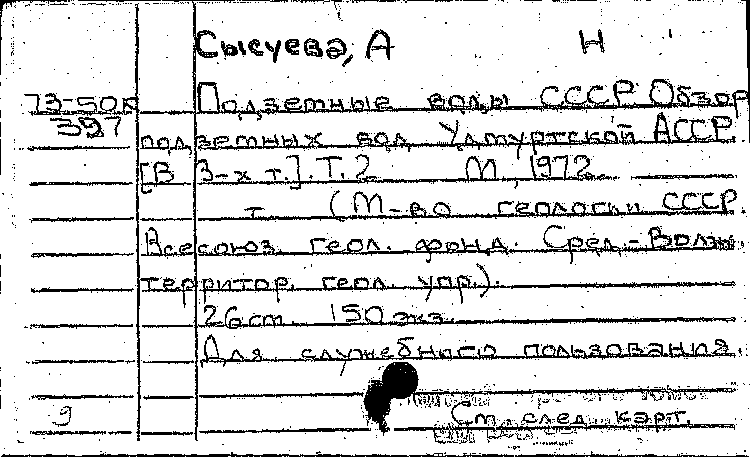 Сысуева, А Н
73-50к Подземные воды СССР Обзор
397 подземных вод Удмуртской АССР.
[В 3-х т.]. Т. 2 М, 1972
т. (М-во геологии СССР.
Всесоюз. геол. фонд. Сред.-Волж.
территор. геол. упр.).
26 cm. 150 экз.
Для служебного пользования.
9 См. след. карт.